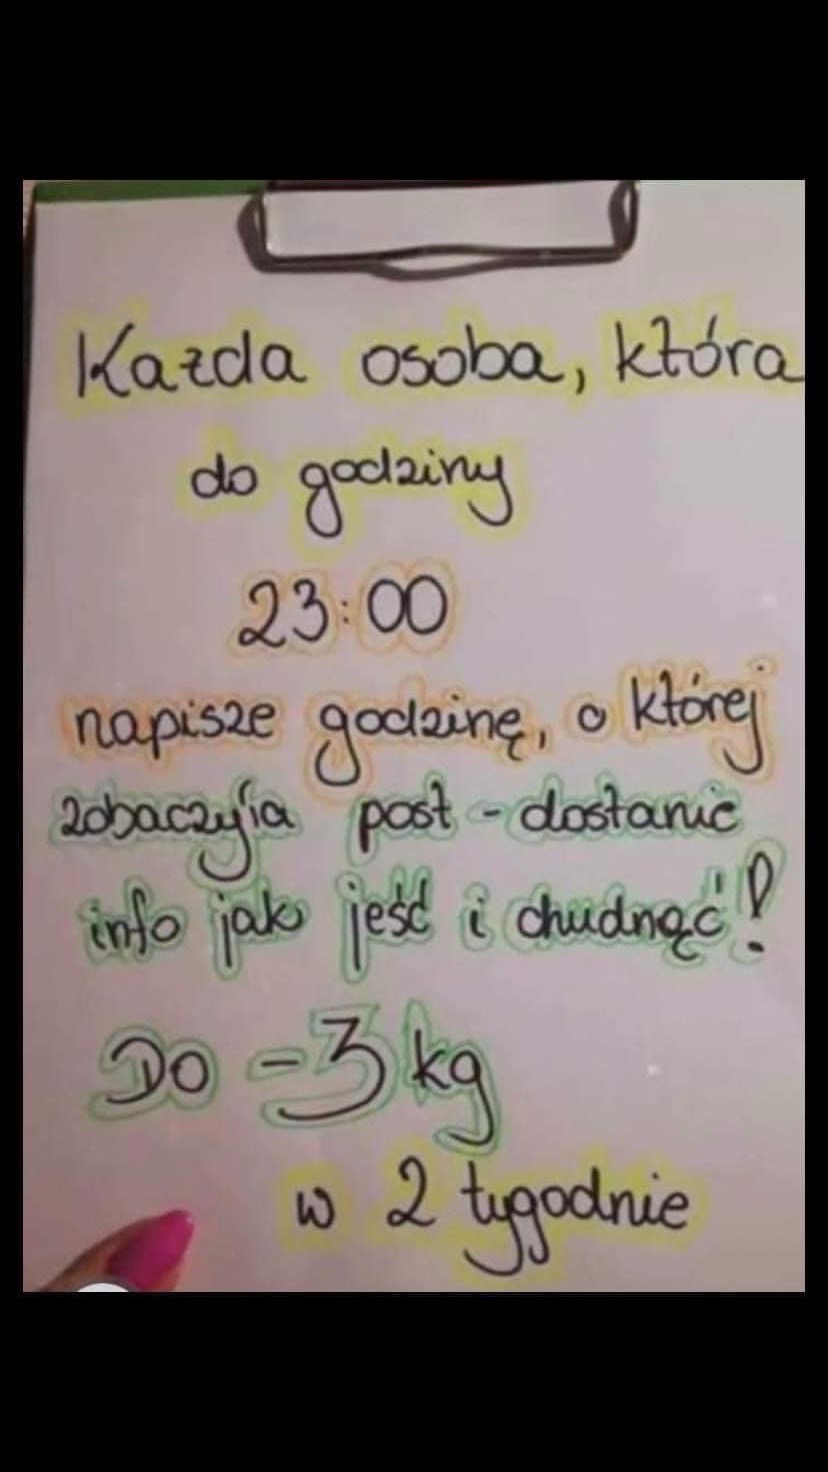 Każda osoba, która
do godziny
23:00
napisze godzinę, o której
zobaczył/a post - dostanie
info jak jeść i chudnąć!
Do -3 kg
w 2 tygodnie